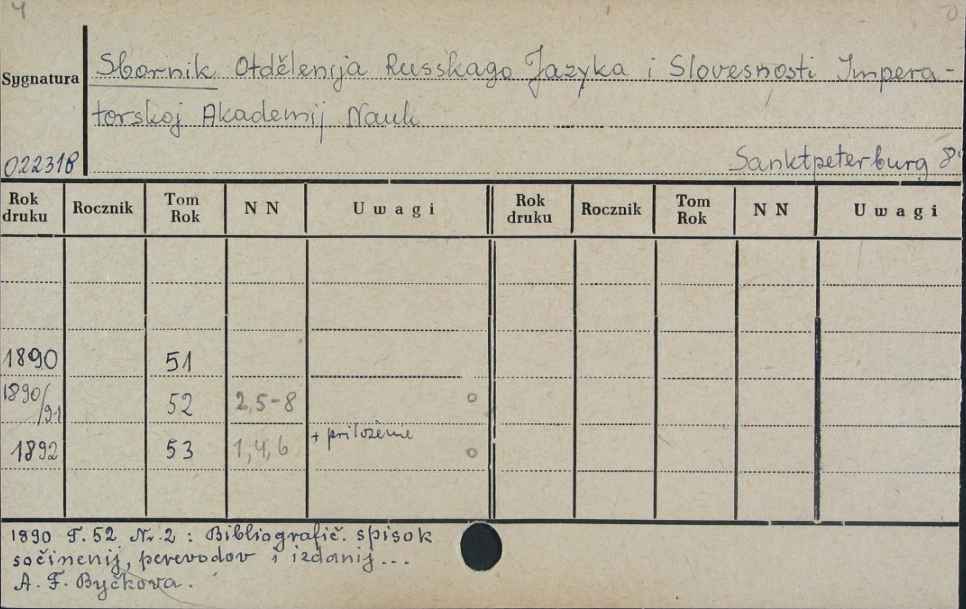 4
Sygnatura
Sbornik Otdělenija Russkago Jazyka i Slovesnosti Impera-
torskoj Akademij Nauk
Sanktpeterburg 8°
022318
Rok druku Rocznik Tom Rok N N Uwagi Rok druku Rocznik Tom Rok N N Uwagi
1890 51
1890/91 52 2,5-8 o
1892 53 1,4,6 + priložénie o
1890 T. 52 Nr. 2 : Bibliografič. spisok
sočinenij, perevodov i izdanij...
A. F. Byčkova.